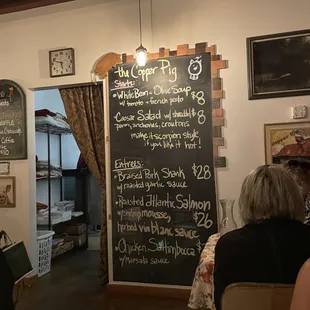 the Copper Pig
Starts:
• White Bean + Olive Soup
w/ tomato + french pesto $8
• Caesar Salad w/ shreddy $8
parm, anchovies, croutons
make it scorpion style
if you like it hot!
Entrees:
• Braised Pork Shank $28
w/ roasted garlic sauce
• Roasted Atlantic Salmon
mousse, $26
herbed vin blanc sauce
• Chicken Saltimbocca
w/ Marsala sauce